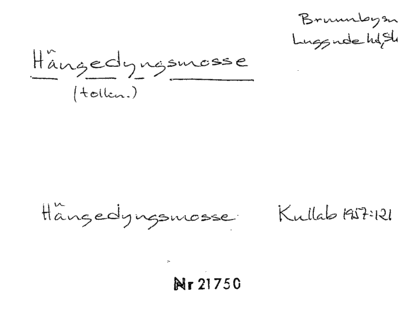 Brunnby sn
Luggude hd, Sk
Hängedyngsmosse
(tolkn.)
Hängedyngsmosse Kullab 1957:121
Nr 21750